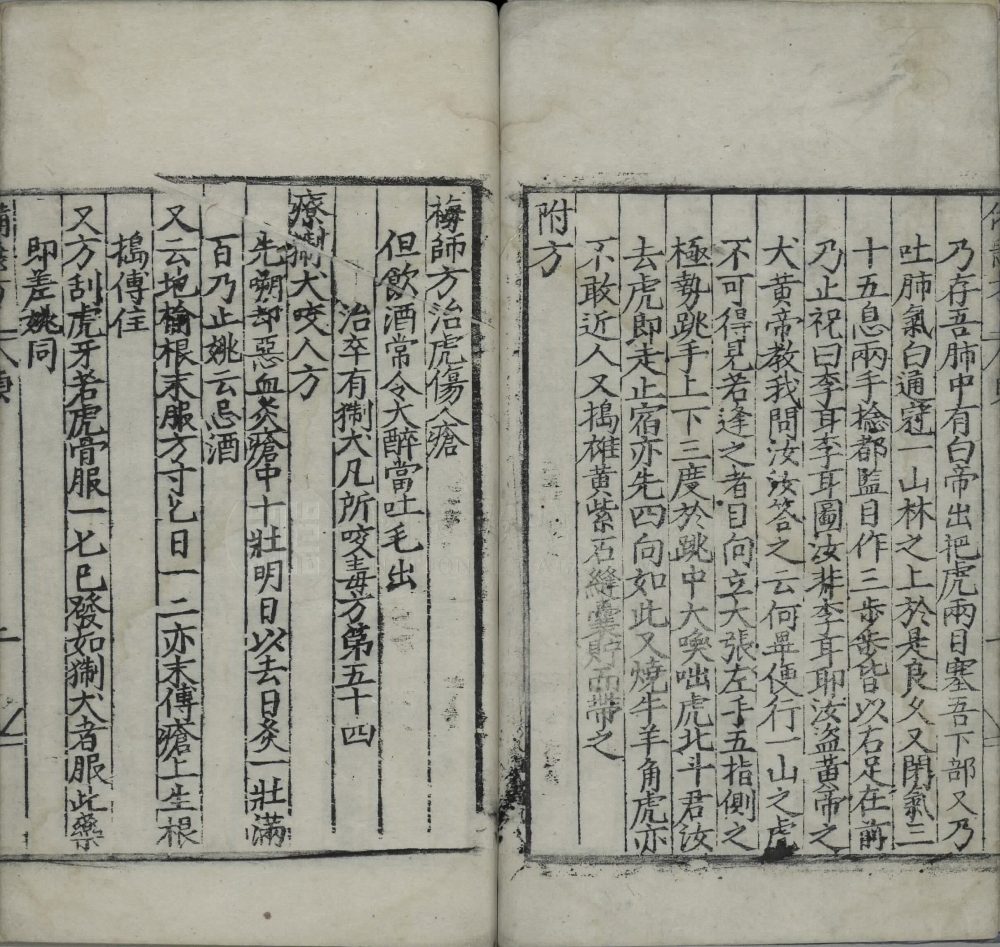 乃存吾肺中有白帝出把虎兩目塞吾下部又乃
吐肺氣白通冠一山林之上於是良久又閉氣三
十五息兩手捻都監目作三步步皆以右足在前
乃止祝曰李耳李耳圖汝非李耳耶汝盜黃帝之
犬黃帝教我問汝汝答之云何畢便行一山之虎
不可得見若逢之者目向立大張左手五指側之
極勢跳手上下三度於跳中大喚咄虎北斗君汝
去虎即走止宿亦先四向如此又燒牛羊角虎亦
不敢近人又搗雄黃紫石縫囊貯而帶之
附方
梅師方治虎傷人瘡
但飲酒常令大醉當吐毛出
治卒有猘犬凡所咬毒方第五十四
療猘犬咬人方
先嗍却惡血灸瘡中十壯明日以去日灸一壯滿
百乃止姚云忌酒
又云地榆根末服方寸匕日一二亦末傳瘡上生根
搗傅佳
又方刮虎牙若虎骨服一匕已發如猘犬者服此藥
即差姚同